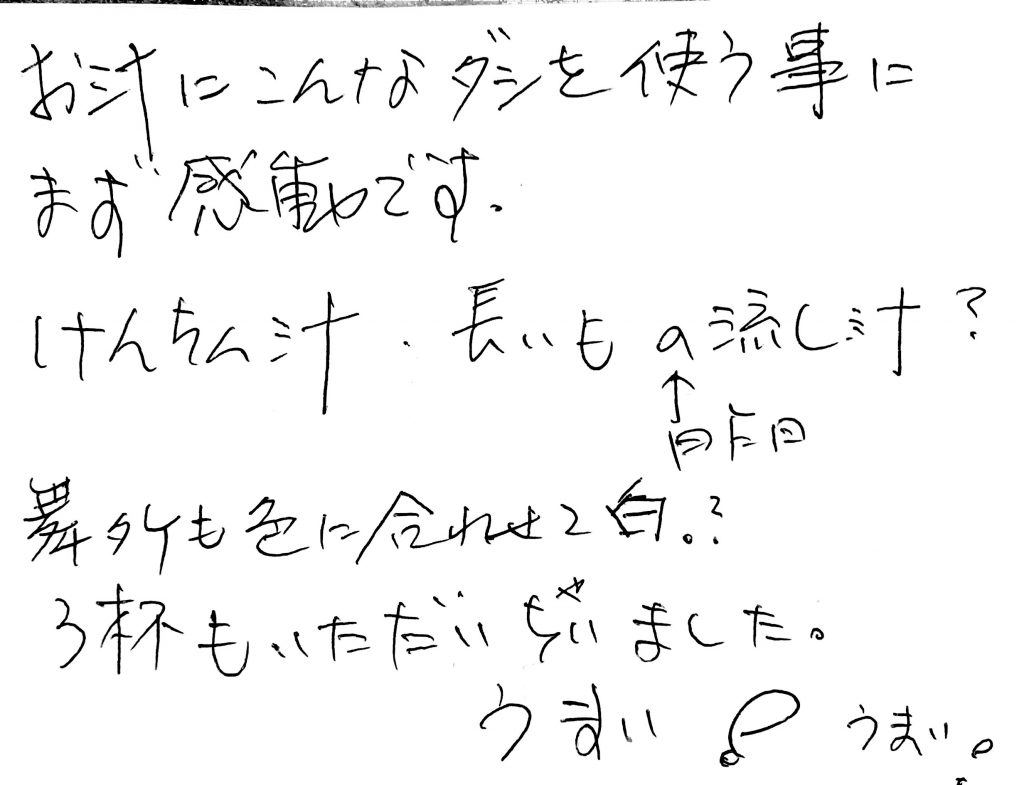 お汁にこんなダシを使う事に
まず感動です.
けんちん汁.長いもの流し汁?
↑
舞タケも色に合わせて白.?
3杯もいただいちゃいました。
うまい うまい。